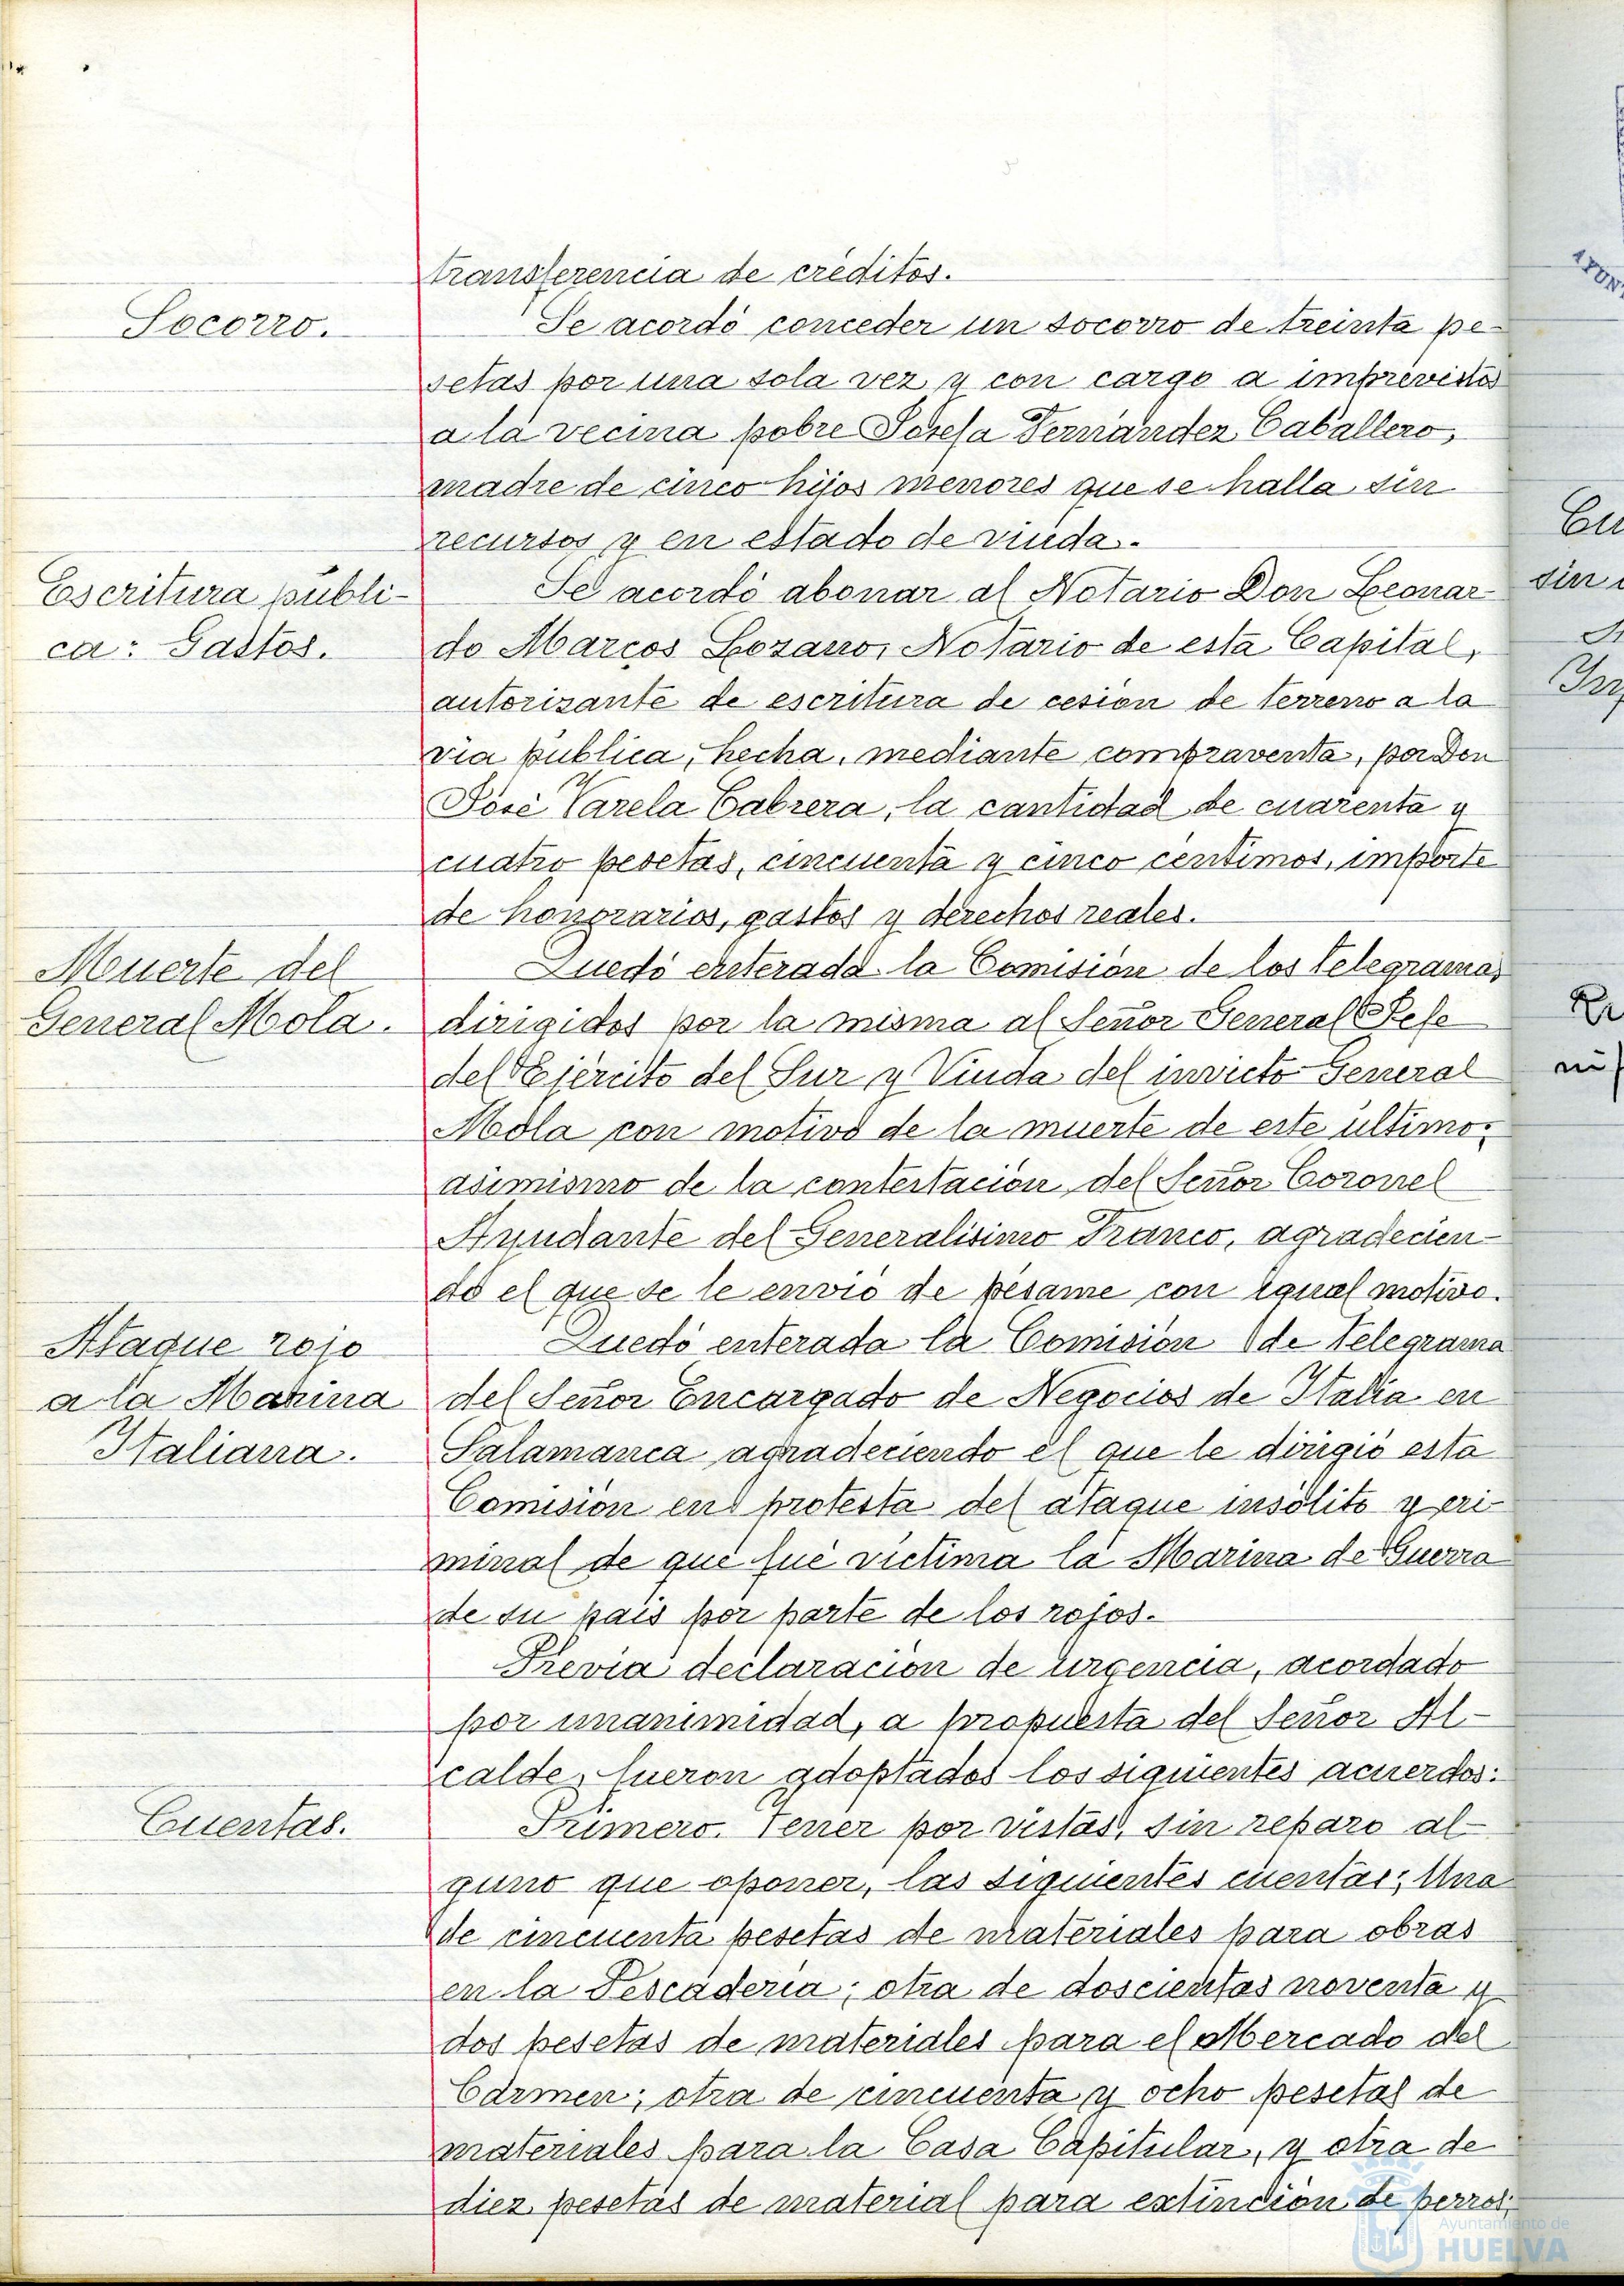 transferencia de créditos.
Socorro.
Se acordó conceder un socorro de treinta pe-
setas por una sola vez y con cargo a imprevistos
a la vecina pobre Josefa Fernández Caballero,
madre de cinco hijos menores que se halla sin
recursos y en estado de viuda.
Escritura públi-
ca: Gastos.
Se acordó abonar al Notario Don Leonar-
do Marcos Lozano, Notario de esta Capital,
autorizante de escritura de cesión de terreno a la
vía pública, hecha, mediante compraventa, por Don
José Varela Cabrera, la cantidad de cuarenta y
cuatro pesetas, cincuenta y cinco céntimos, importe
de honorarios, gastos y derechos reales.
Muerte del
General Mola.
Quedó enterada la Comisión de los telegramas
dirigidos por la misma al Señor General Jefe
del Ejército del Sur y Viuda del invicto General
Mola con motivo de la muerte de este último:
asimismo de la contestación del Señor Coronel
Ayudante del Generalísimo Franco, agradecien-
do el que se le envió de pésame con igual motivo.
Ataque rojo
a la Marina
Italiana.
Quedó enterada la Comisión de telegrama
del Señor Encargado de Negocios de Italia en
Salamanca agradeciendo el que le dirigió esta
Comisión en protesta del ataque insólito y cri-
minal de que fué víctima la Marina de Guerra
de su país por parte de los rojos.
Previa declaración de urgencia, acordado
por unanimidad, a propuesta del Señor Al-
calde, fueron adoptados los siguientes acuerdos:
Cuentas.
Primero. Tener por vistas, sin reparo al-
guno que oponer, las siguientes cuentas: Una
de cincuenta pesetas de materiales para obras
en la Pescadería; otra de doscientas noventa y
dos pesetas de materiales para el Mercado del
Carmen; otra de cincuenta y ocho pesetas de
materiales para la Casa Capitular, y otra de
diez pesetas de material para extinción de perros;
Ayuntamiento de
HUELVA